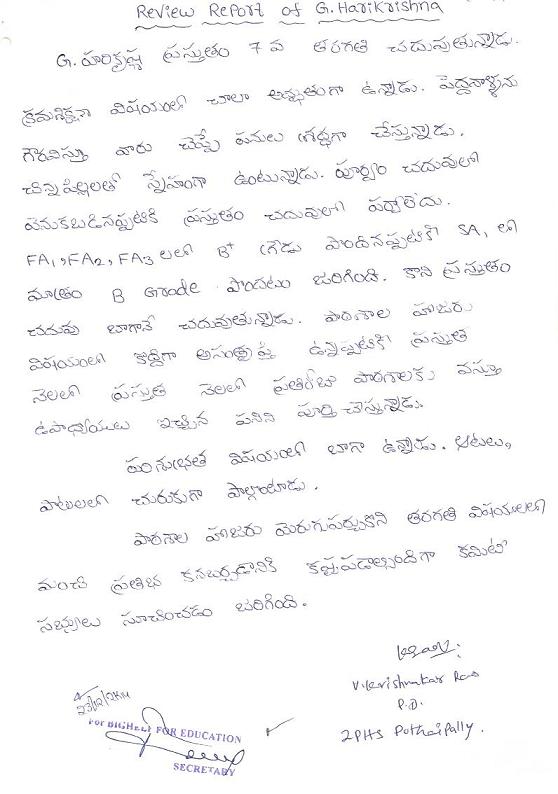 Review Report of G.Harikrishna
G. హరికృష్ణ ప్రస్తుతం 7 వ తరగతి చదువుతున్నాడు.
క్రమశిక్షణ విషయంలో చాలా అద్భుతంగా ఉన్నాడు. పెద్దవాళ్ళను
గౌరవిస్తూ వారు చెప్పే పనులు శ్రద్ధగా చేస్తున్నాడు.
చిన్నపిల్లలతో స్నేహంగా ఉంటున్నాడు. పూర్వం చదువులో
వెనుకబడినప్పటికి ప్రస్తుతం చదువులో పర్వాలేదు.
FA1, FA2, FA3 లలో B+ గ్రేడు పొందినప్పటికీ SA1 లో
మాత్రం B Grade పొందటం జరిగింది. కాని ప్రస్తుతం
చదువు బాగానే చదువుతున్నాడు. పాఠశాల హాజరు
విషయంలో కొద్దిగా అసంతృప్తి ఉన్నప్పటికీ ప్రస్తుత
నెలలో ప్రస్తుత నెలలో ప్రతిరోజు పాఠశాలకు వస్తూ
ఉపాధ్యాయులు ఇచ్చిన పనిని పూర్తి చేస్తున్నాడు.
పరిశుభ్రత విషయంలో బాగా ఉన్నాడు. ఆటలు,
పాటలలో చురుకుగా పాల్గొంటాడు.
పాఠశాల హాజరు మెరుగుపర్చుకొని తరగతి విషయాలలో
మంచి ప్రతిభ కనబర్చడానికి కష్టపడాల్సిందిగా కమిటీ
సభ్యులు సూచించడం జరిగింది.
P.D.
ZPHS Pothaipally.
23/12/2K14
For BIGHELP FOR EDUCATION
SECRETARY